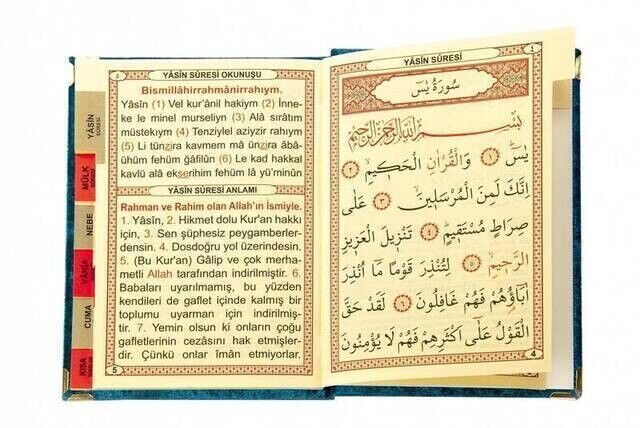 YÂSİN SÛRESİ
٤
سُورَةُ يٰسٓ
بِسْمِ اللّٰهِ الرَّحْمٰنِ الرَّحِيمِ
يٰسٓ ﴿١﴾ وَالْقُرْاٰنِ الْحَكِيمِ ﴿٢﴾
اِنَّكَ لَمِنَ الْمُرْسَلِينَ ﴿٣﴾ عَلٰى
صِرَاطٍ مُسْتَقِيمٍ ﴿٤﴾ تَنْزِيلَ الْعَزِيزِ
الرَّحِيمِ ﴿٥﴾ لِتُنْذِرَ قَوْمًا مَٓا اُنْذِرَ
اٰبَٓاؤُهُمْ فَهُمْ غَافِلُونَ ﴿٦﴾ لَقَدْ حَقَّ
الْقَوْلُ عَلٰٓى اَكْثَرِهِمْ فَهُمْ لَا يُؤْمِنُونَ
4
٥
YÂSİN SÛRESİ OKUNUŞU
Bismillâhirrahmânirrahıym.
Yâsîn (1) Vel kur'ânil hakiym (2) İnne-
ke le minel murseliyn (3) Alâ sırâtım
müstekıym (4) Tenziylel aziyzir rahıym
(5) Li tünzira kavmem mâ ünzira âbâ-
ühüm fehüm ğâfilûn (6) Le kad hakkal
kavlü alâ ekserihim fehüm lâ yü'minûn
YÂSİN SÛRESİ ANLAMI
Rahman ve Rahim olan Allah'ın İsmiyle.
1. Yâsîn, 2. Hikmet dolu Kur'an hakkı
için, 3. Sen şüphesiz peygamberler-
densin. 4. Dosdoğru yol üzerindesin.
5. (Bu Kur'an) Gâlip ve çok merha-
metli Allah tarafından indirilmiştir. 6.
Babaları uyarılmamış, bu yüzden
kendileri de gaflet içinde kalmış bir
toplumu uyarman için indirilmiş-
tir. 7. Yemin olsun ki onların çoğu
gafletlerinin cezasını hak etmişler-
dir. Çünkü onlar îmân etmiyorlar.
5
YÂSİN
SÛRESİ
MÜLK
NEBE
VÂKIA
CUMA
KISA